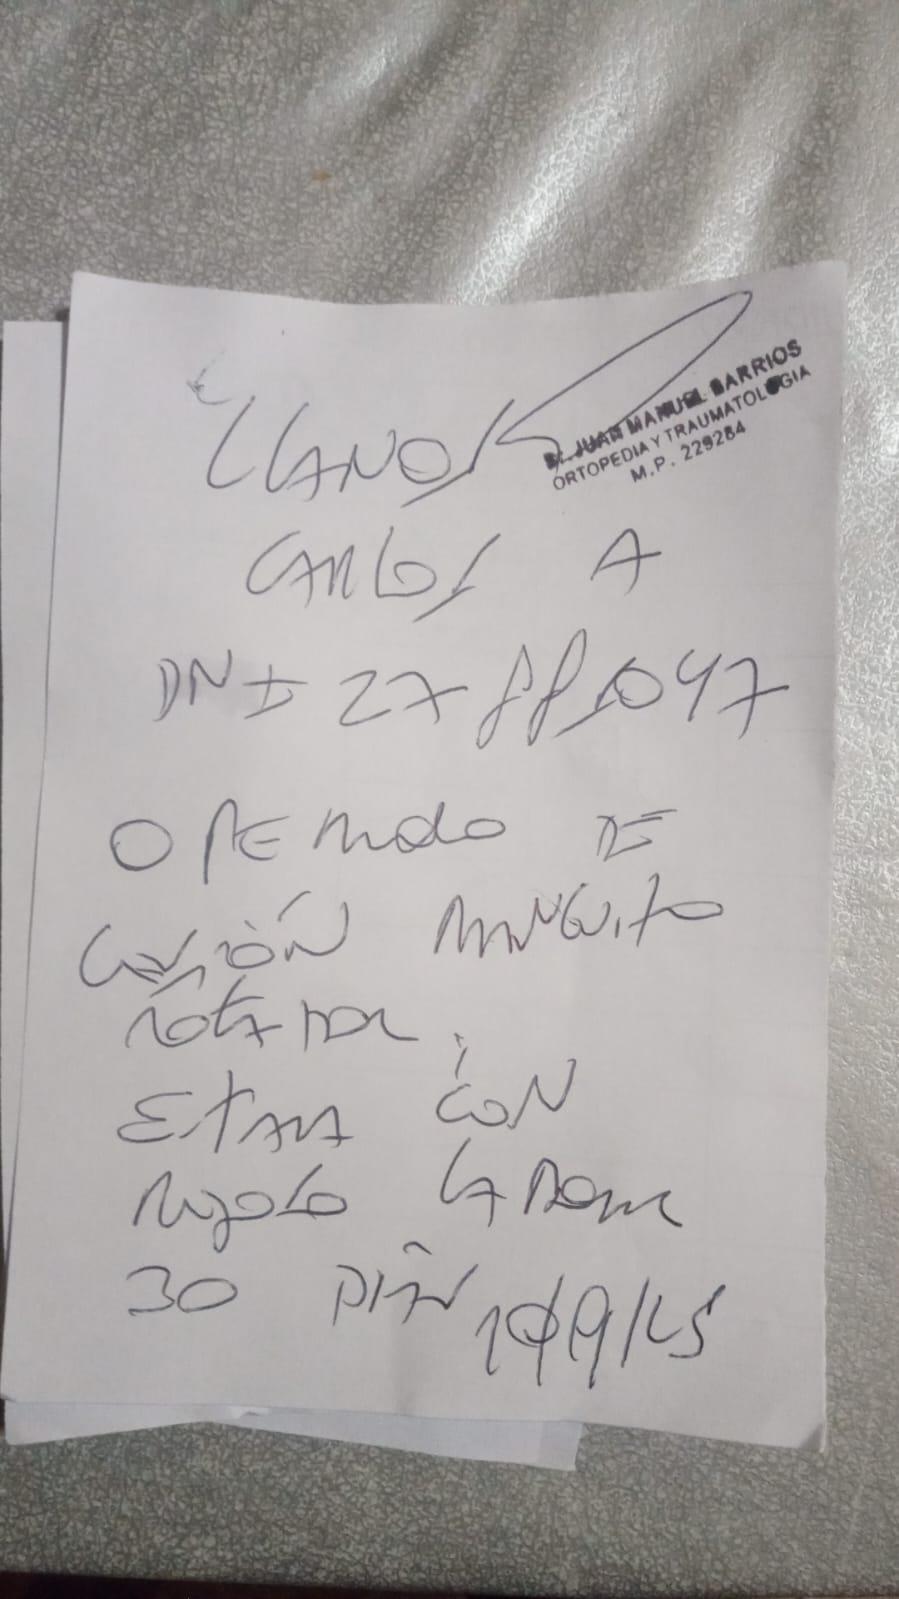 Dr. JUAN MANUEL BARRIOS
ORTOPEDIA Y TRAUMATOLOGIA
M.P. 229264
LLANOS
CARLOS A
DNI 27881047
OPERADO DE
LESIÓN MANGUITO
ROTADOR.
ESTARA CON
REPOSO LABORAL
30 DIAS 10/9/25